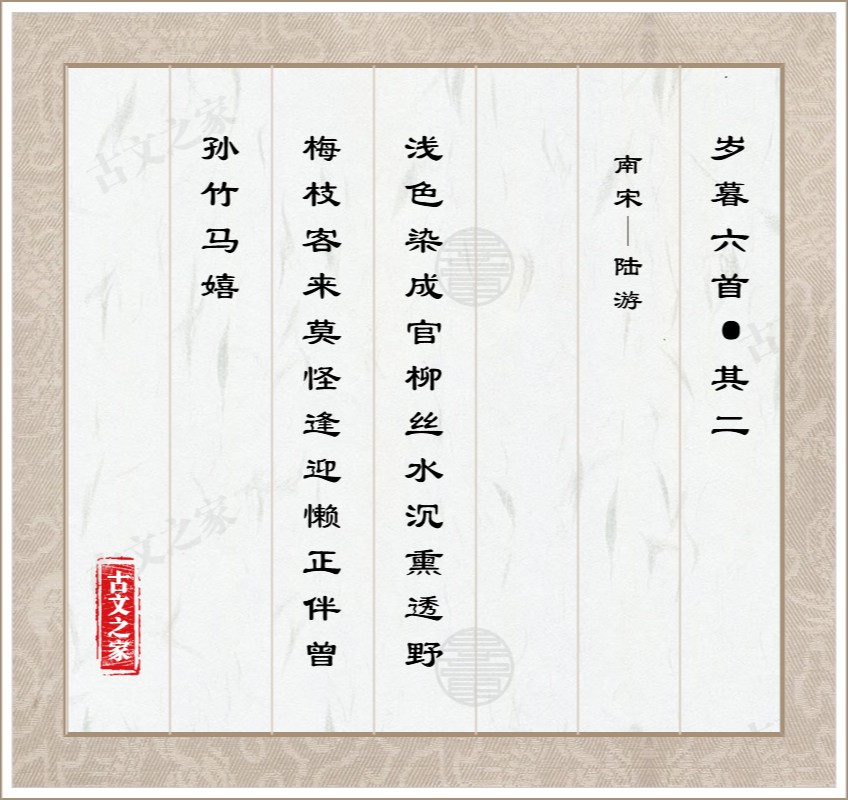 岁暮六首●其二
南宋—陆游
浅色染成官柳丝水沉熏透野
梅枝客来莫怪逢迎懒正伴曾
孙竹马嬉
古文之家
古文之家
古文之家